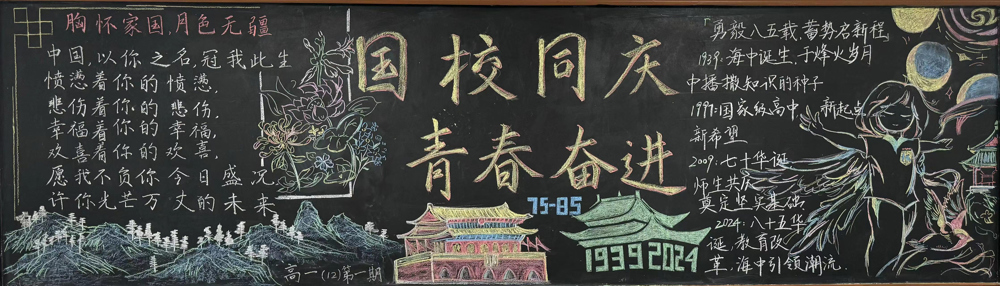 胸怀家国,月色无疆
中国,以你之名,冠我此生
愤懑着你的愤懑,
悲伤着你的悲伤,
幸福着你的幸福,
欢喜着你的欢喜,
愿我不负你今日盛况
许你光芒万丈的未来
高一(12)第一期
国校同庆
青春奋进
75-85
1939 2024
勇毅八五载 蓄势启新程
1939:海中诞生,于烽火岁月
中播撒知识的种子
1997:国家级高中,新起点
新希望
2009:七十华诞
师生共庆
奠定坚实基础
2024:八十五华
诞,教育改
革,海中引领潮流.